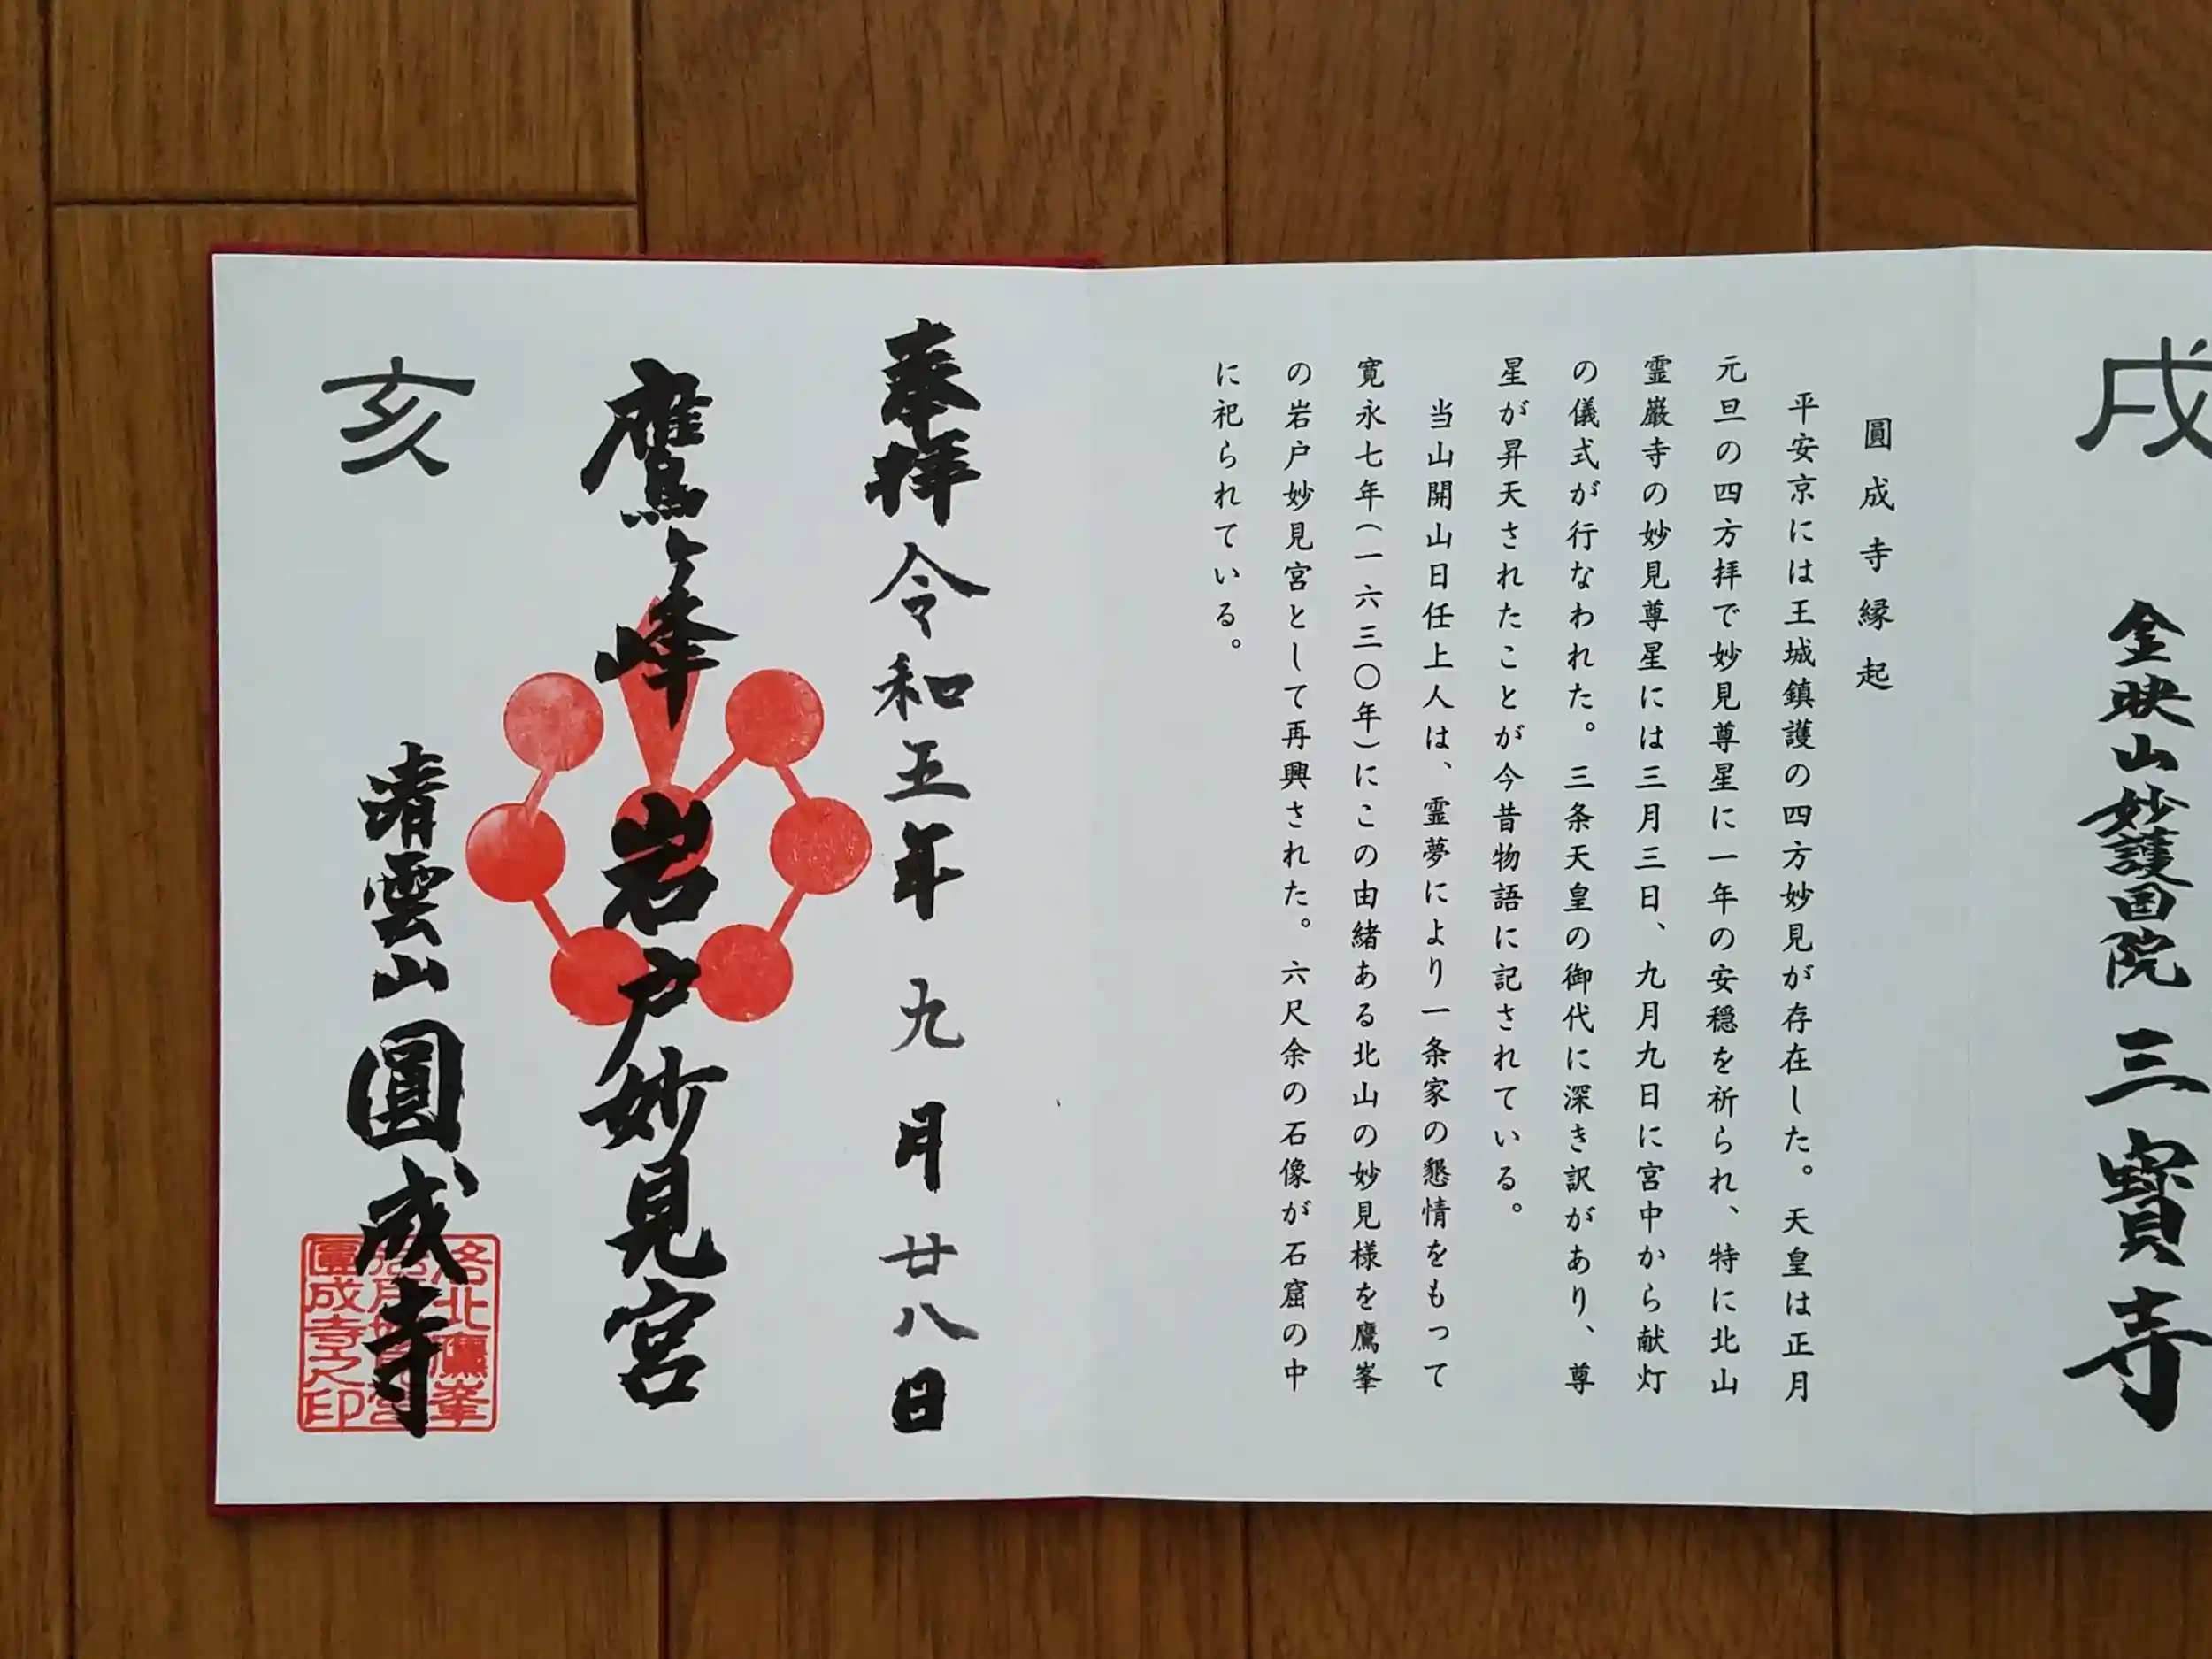 戌
金映山妙護国院 三寳寺
圓成寺縁起
平安京には王城鎮護の四方妙見が存在した。天皇は正月
元旦の四方拝で妙見尊星に一年の安穏を祈られ、特に北山
霊巌寺の妙見尊星には三月三日、九月九日に宮中から献灯
の儀式が行なわれた。三条天皇の御代に深き訳があり、尊
星が昇天されたことが今昔物語に記されている。
当山開山日任上人は、霊夢により一条家の懇情をもって
寛永七年(一六三〇年)にこの由緒ある北山の妙見様を鷹峯
の岩戸妙見宮として再興された。六尺余の石像が石窟の中
に祀られている。
奉拝 令和五年 九月廿八日
鷹峰 岩戸妙見宮
亥
清雲山 圓成寺
洛北鷹峯
圓成寺之印